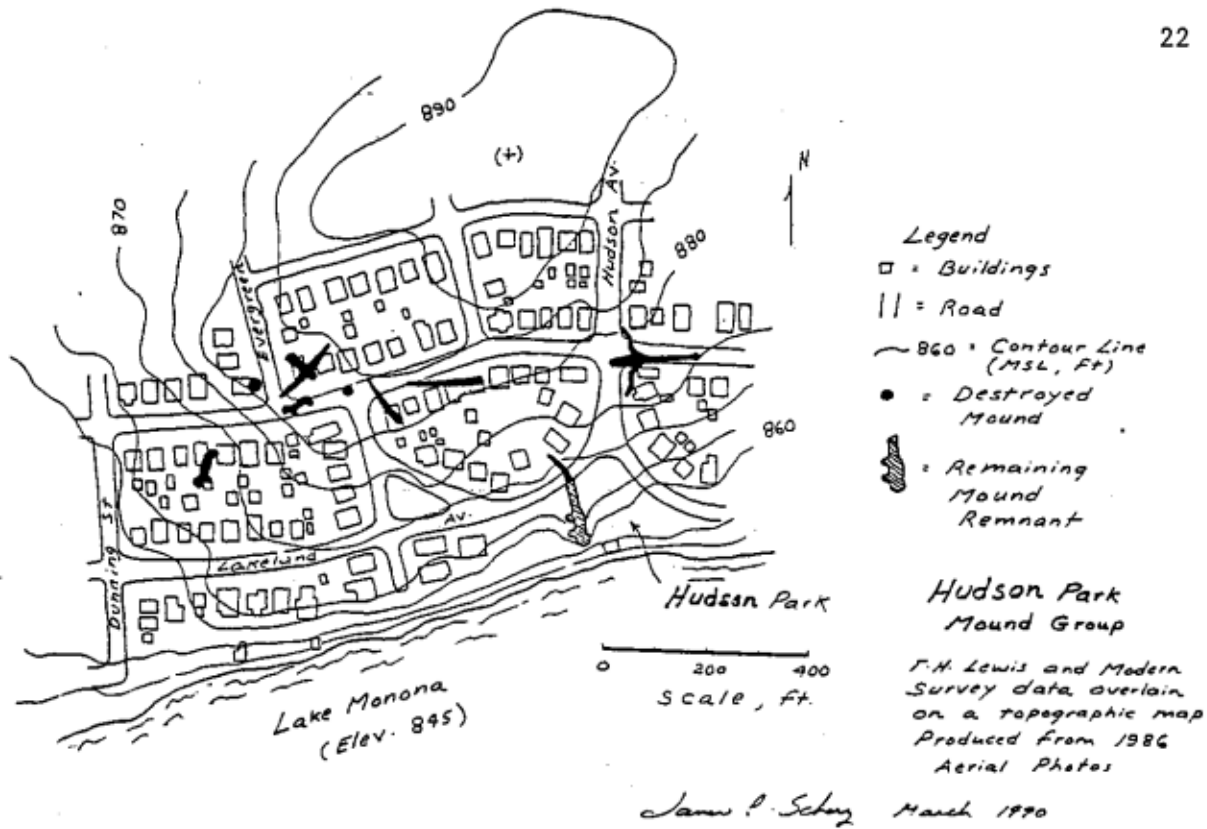 22
890
(+)
N
870
Hudson Av.
880
Evergreen
860
Dunning St
Lakeland Av.
Hudson Park
Lake Monona
(Elev. 845)
0 200 400
Scale, ft.
Legend
= Buildings
= Road
860 = Contour Line
(MSL, Ft)
= Destroyed
Mound
= Remaining
Mound
Remnant
Hudson Park
Mound Group
T.H. Lewis and Modern
Survey data overlain
on a topographic map
Produced from 1986
Aerial Photos
James P. Scherz March 1990